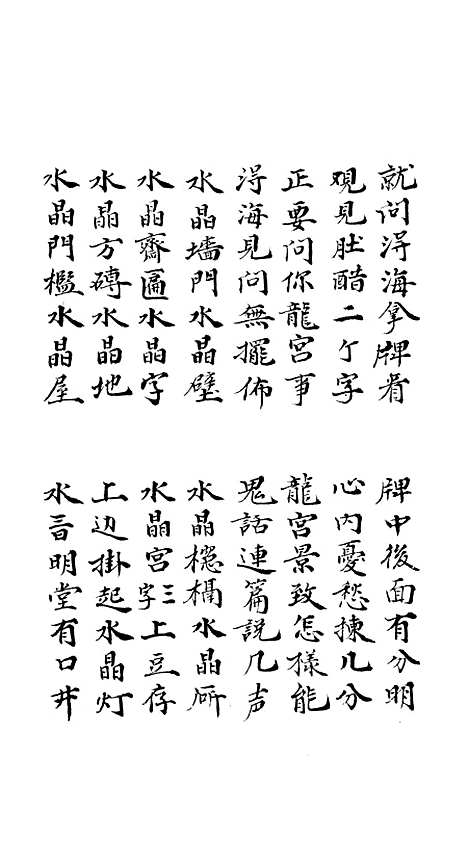 就问淂海拿牌看 牌中後面有分明
观見肚酷二个字 心内憂愁揀几分
正要问你龍宫事 龍宫景致怎樣能
淂海見问無擺佈 鬼話連篇説几声
水晶墻門水晶壁 水晶槵槅水晶𠩄
水晶齋匾水晶字 水晶宫三字上豆存
水晶方磚水晶地 上边掛起水晶灯
水晶門檻水晶屋 水晋明堂有口井